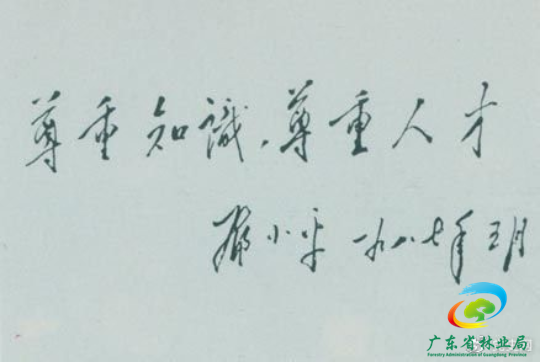 尊重知識，尊重人才
鄧小平 一九八七年五月
广东省林业局
Forestry Administration of Guangdong Province